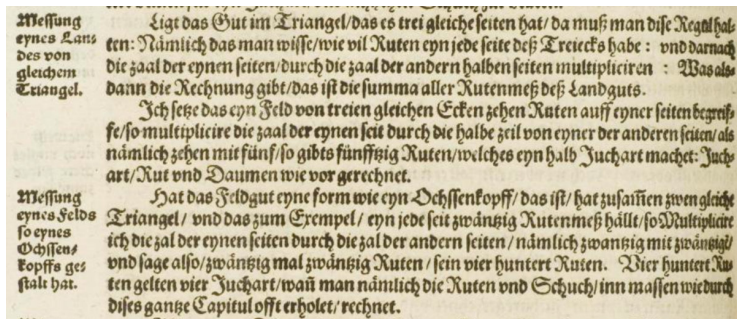 Messung
eynes Lan⸗
des von
gleichem
Triangel.
Ligt das Gut im Triangel/das es trei gleiche seiten hat/da muß man dise Regel hal⸗
ten: Nämlich das man wisse/wie vil Ruten eyn jede seite deß Treiecks habe: vnd darnach
die zaal der eynen seiten/durch die zaal der andern halben seiten multipliciren: Was als⸗
dann die Rechnung gibt/das ist die summa aller Rutenmeß deß Landguts.
Ich setze das eyn Feld von treien gleichen Ecken zehen Ruten auff eyner seiten begreif⸗
fe/so multiplicire die zaal der eynen seit durch die halbe zeil von eyner der anderen seiten/als
nämlich zehen mit fünf/so gibts fünfftzig Ruten/welches eyn halb Juchart machet: Juch⸗
art/Rut vnd Daumen wie vor gerechnet.
Messung
eynes Felds
so eynes
Ochssen⸗
kopffs ge⸗
stalt hat.
Hat das Feldgut eyne form wie eyn Ochssenkopff/das ist/hat zusam̃en zwen gleiche
Triangel/vnd das zum Exempel/eyn jede seit zwäntzig Rutenmeß hällt/so Multiplicire
ich die zal der eynen seiten durch die zal der andern seiten/nämlich zwantzig mit zwäntzigẽ/
vnd sage also/zwäntzig mal zwäntzig Ruten/sein vier huntert Ruten. Vier huntert Ru⸗
ten gelten vier Juchart/wañ man nämlich die Ruten vnd Schuch/inn massen wie durch
dises gantze Capitul offt erholet/rechnet.